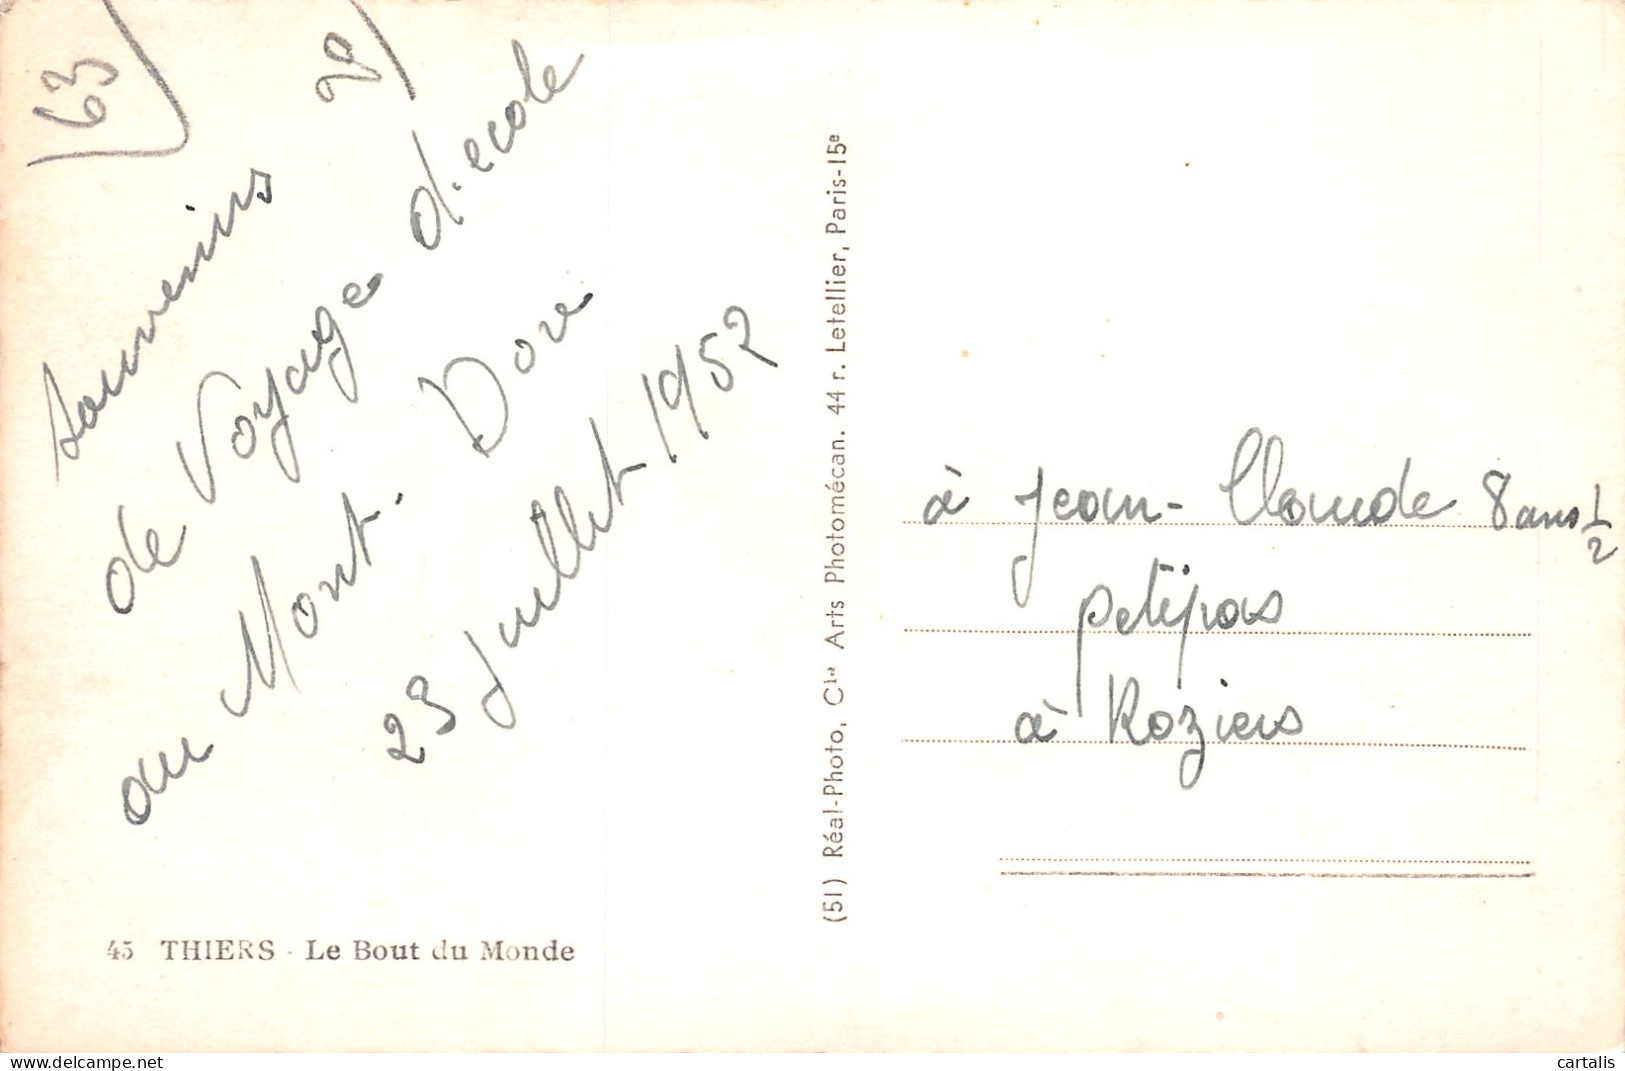 63
20
souvenirs
de Voyage d'ecole
au Mont. Dore
23 juillet 1952
45 THIERS - Le Bout du Monde
(51) Réal-Photo, Cie Arts Photomécan. 44 r. Letellier, Paris-15e
à Jean-Claude 8 ans 1/2
petipas
à Roziers
cartalis